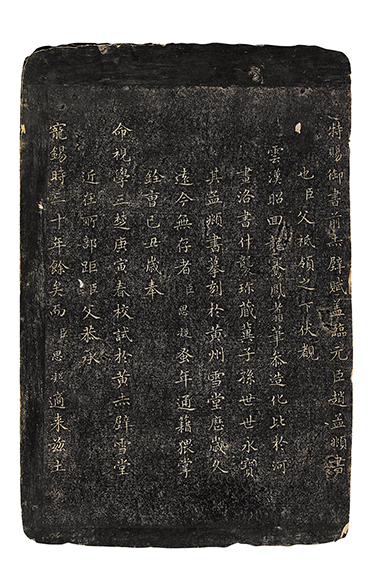 特賜御書前赤壁賦蓋臨元臣趙孟頫書
也臣父祗領之下伏覩
雲漢昭回龍驤鳳翥筆參造化比於河
書洛書什襲珍藏冀子孫世世永寶
其孟頫書摹刻於黃州雪堂歷歲久
遠今無存者臣思 叁年通籍猥掌
絲 己丑歲奉
命視學三楚庚寅春校試於黃赤壁雪堂
近在所部距臣父恭承
寵錫時三十年餘矣而臣思 適來茲土